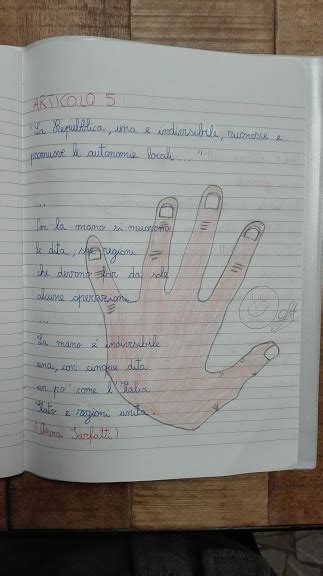 ARTICOLO 5
"La Repubblica, una e indivisibile, riconosce e
promuove le autonomie locali...."
...
Con la mano si muovono
le dita, le regioni
che devono far da sole
alcune operazioni
...
La mano è indivisibile
una, con cinque dita
un po' come l'Italia
Stato e regioni unita.
(Anna Sarfatti)